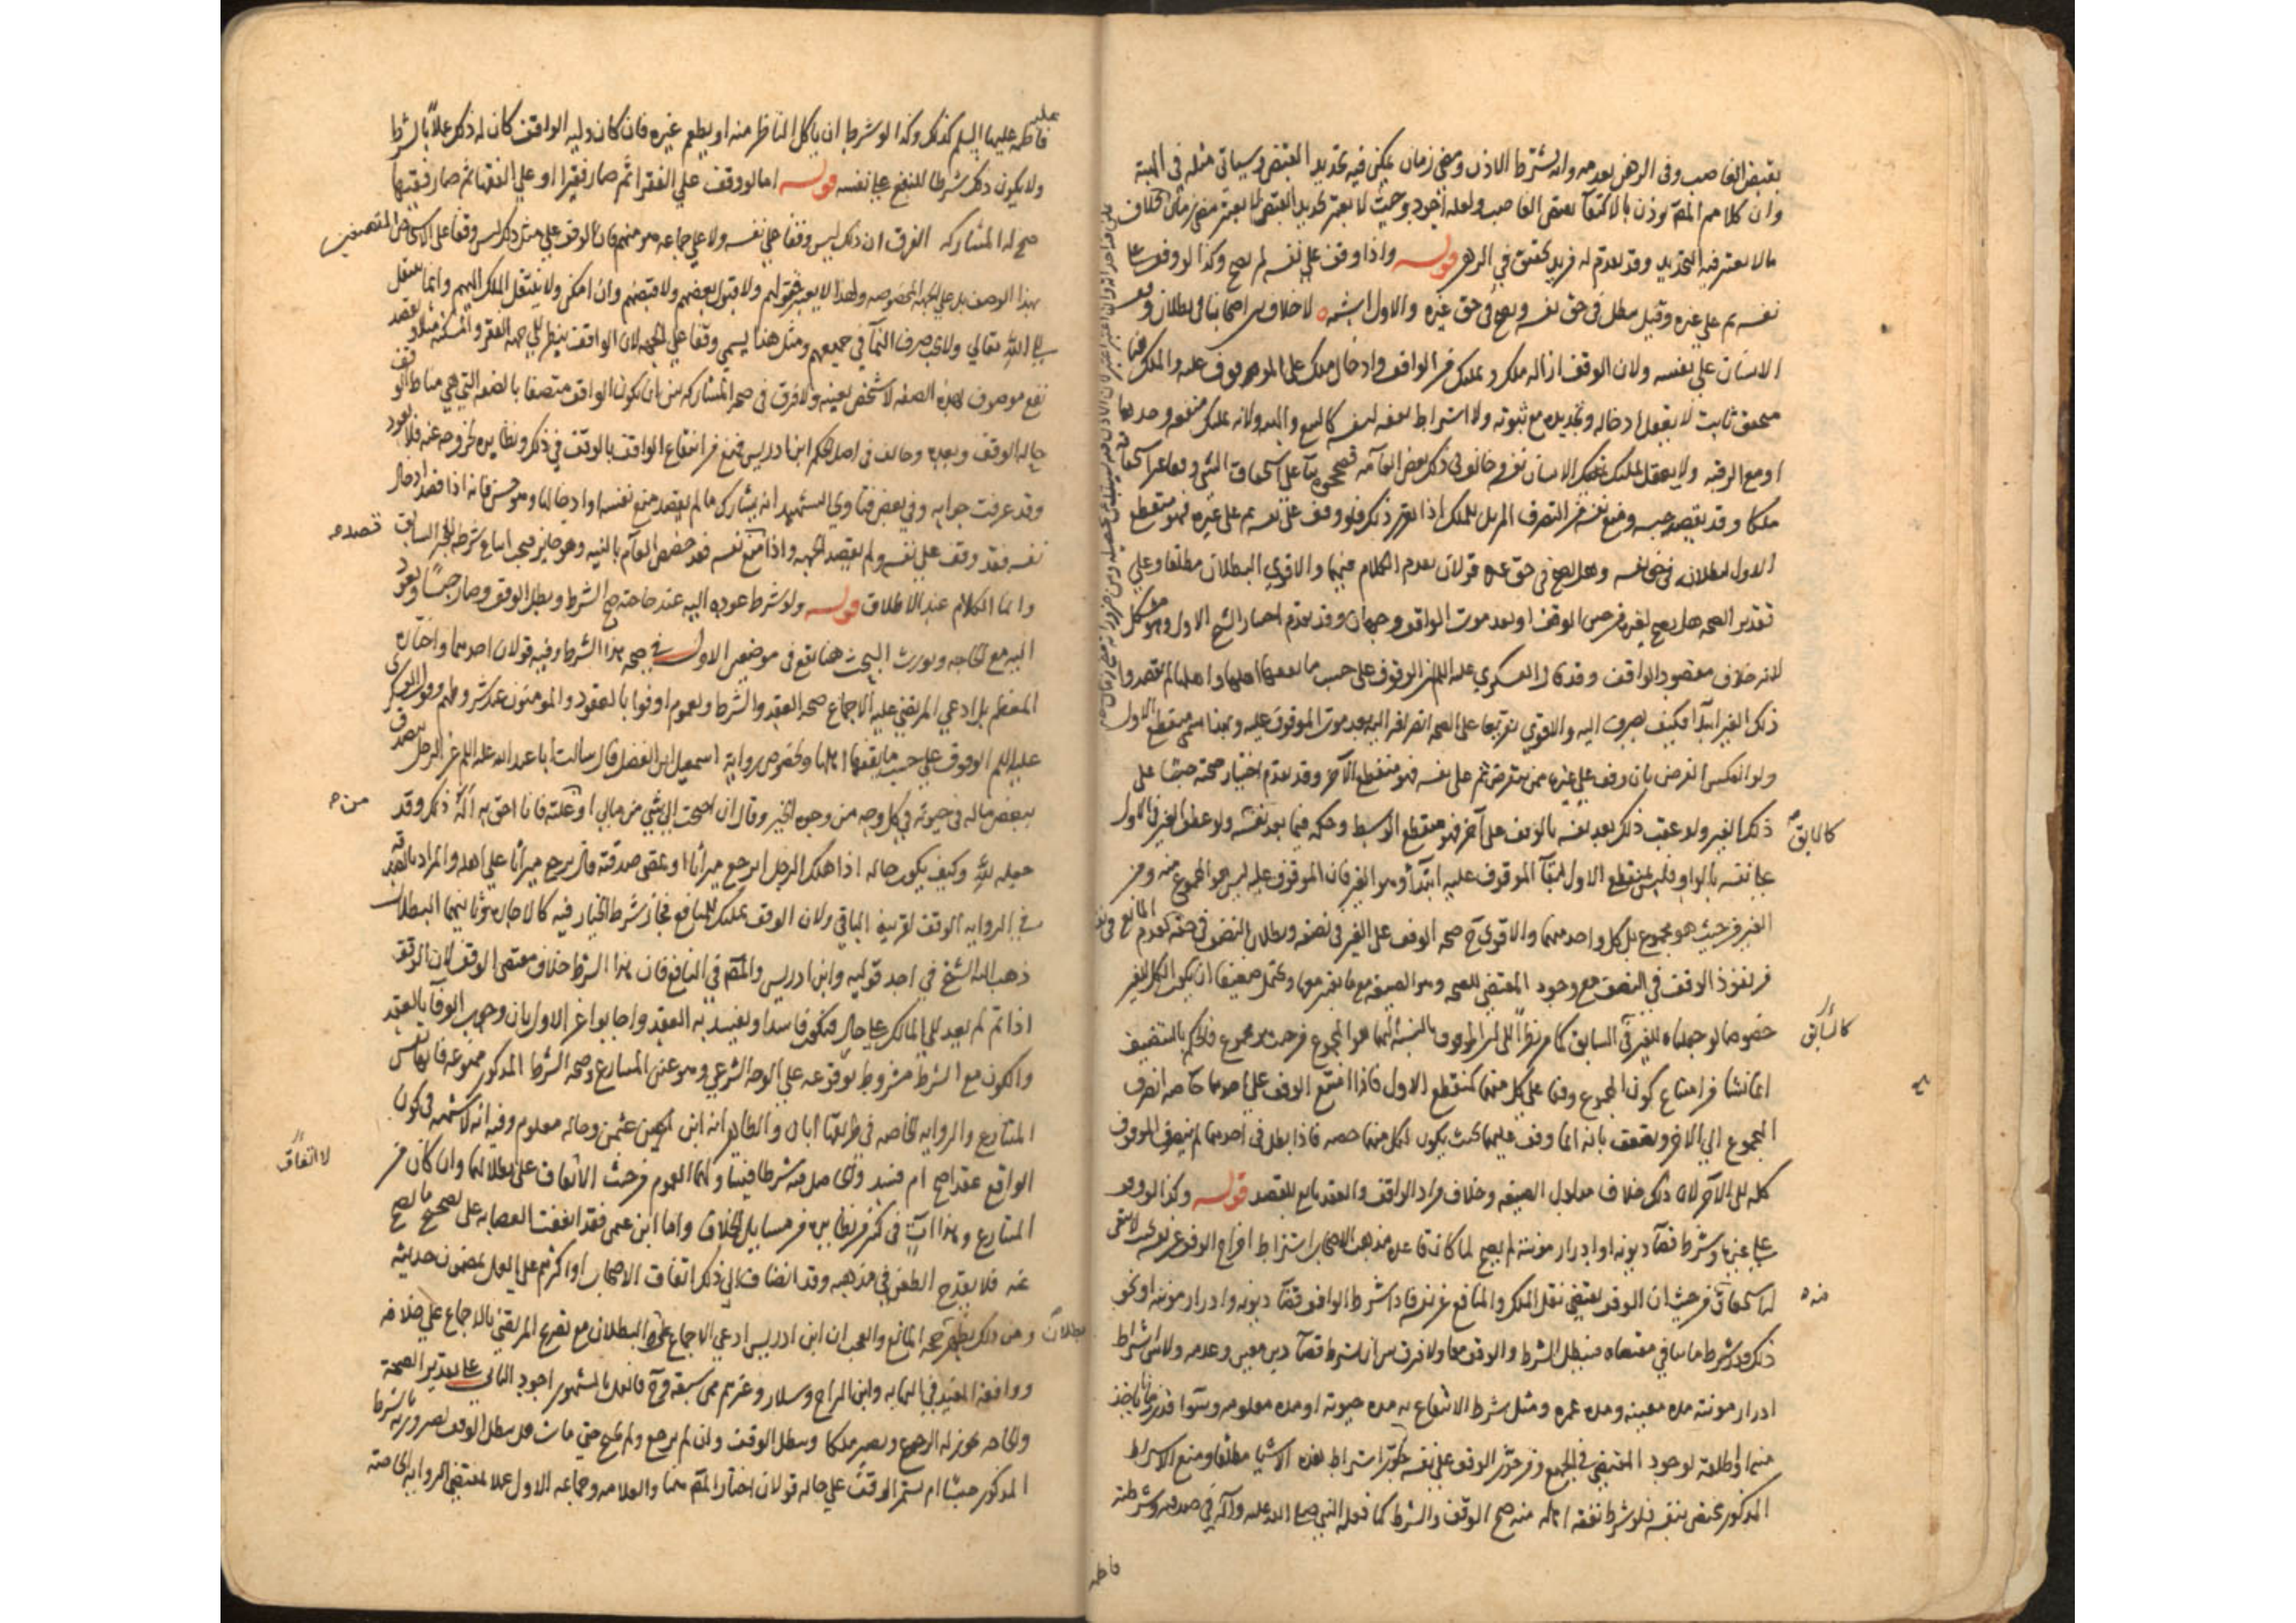 بقبض الغاصب وفى الرهن بعدمه وانه يشترط الاذن ومضى زمان يمكن فيه تجديد القبض وسياتى مثله فى الهبة
وان كلامهم المتقدم يوذن بالاكتفآ بقبض الغاصب ولعله اجود وحيث لا يعتبر تجديد القبض لا يعتبر مضى زمان بخلاف
مالا يعتبر فيه التجديد وقد تقدم له مزيد تحقيق في الرهن قوله واذا وقف على نفسه لم يصح وكذا لو وقف على
نفسه ثم على غيره وقيل يبطل فى حق نفسه ويصح فى حق غيره والاول اشبه لا خلاف بين اصحابنا فى بطلان وقف
الانسان على نفسه ولان الوقف ازالة ملك وتمليك من الواقف وادخال ملك على الموقوف عليه والملك هنا
متحقق ثابت لا يعقل ادخاله وتجديده مع ثبوته ولا اشتراط نفعه لنفسه كالبيع والهبة ولانه تمليك منفعة وحدها
او مع الرقبة ولا يعقل تمليك الانسان نفسه وخالف فى ذلك بعض العامه فصححوه بنآ على استحقاق الشى وقفا غير استحقاقه
ملكا وقد يقصد حبسه ومنع نفسه من التصرف المزيل للملك اذا تقرر ذلك فلو وقف على نفسه ثم على غيره فهو منقطع
الاول لبطلانه فى حق نفسه وهل يصح فى حق غيره قولان تقدم الكلام فيهما والاقوى البطلان مطلقا وعلى
تقدير الصحه هل يصح لغيره من حين الوقف او بعد موت الواقف وجهان وقد تقدم اختيار الشيخ الاول وهو مشكل
لانه خلاف مقصود الواقف وقد قال العسكري عليه السلم الوقوف على حسب ما يقفها اهلها واهلها لم يقصدوا
ذلك الغير ابتدآ فكيف يصرف اليه والاقوي تفريعا على الصحة انصرافه اليه بعد موت الموقوف عليه وهذا يسمى منقطع الاول
ولو انعكس الفرض بان وقف على غيره ممن ينقرض ثم على نفسه فهو منقطع الآخر وقد تقدم اختيار صحته حبسا على
ذلك الغير ولو عقب ذلك بعد نفسه بالوقف على آخر فهو منقطع الوسط وحكمه فيما بعد نفسه ولو عطف الغير فى الاول
كالسابق
على نفسه بالواو فليس بمنقطع الاول لبقآ الموقوف عليه ابتدآ وهو الغير فان الموقوف عليه ليس هو المجموع منه ومن
الغير من حيث هو مجموع بل كل واحد منهما والاقوى ح صحه الوقف على الغير فى نصفه وبطلان النصف فى حقه لعدم المانع
من نفوذ الوقف فى النصف مع وجود المقتضى للصحه وهو الصيغه مع ما يعتبر معها ويحتمل ضعيفا ان يكون الكل للغير
خصوصا لو جعلناه للغير فى السابق كما مر نظرا الى ان الموقوف بالنسبة اليهما هو المجموع من حيث هو مجموع فالحكم بالتنصيف
كالسابق
انما نشا من امتناع كون المجموع وقفا على كل منهما كمنقطع الاول فاذا امتنع الوقف على احدهما خاصه انصرف
المجموع الى الاخر ويضعف بانه انما وقف عليهما بحيث يكون لكل منهما حصه فاذا بطل فى احدهما لم ينصرف الموقوف
كله الى الآخر لان ذلك خلاف مدلول الصيغه وخلاف مراد الواقف والعقد تابع للقصد قوله وكذا لو وقف
على غيره وشرط قضآ ديونه او ادرار مونته لم يصح لما كان قاعدة مذهب الاصحاب اشتراط اخراج الوقف عن نفسه بحيث لا يبقى
له استحقاق من حيث ان الوقف يقتضي نقل الملك والمنافع عن نفسه فاذا شرط الواقف قضآ ديونه او ادرار مونته او نحو
منه
ذلك فقد شرط ما ينافى مقتضاه فيبطل الشرط والوقف معا ولا فرق بين ان يشرط قضآ دين معين وعدمه ولا بين اشتراط
ادرار مونته مده معينه ومدة عمره ومثله شرط الانتفاع به مدة حيوته او مده معلومه وسوا قدر ما ياخذ
منها او اطلقه لوجود المقتضى فى الجميع ومن جوز الوقف على نفسه جوز اشتراط هذه الاشيا مطلقا ومنع الاشتراط
المذكور مختص بنفسه فلو شرط نفقة اهاله منه صح الوقف والشرط كما فعله النبى صلى الله عليه وآله في صدقته وشرطته
فاطمه
فاطمه عليها السلم كذلك وكذا لو شرط ان ياكل الناظر منه او يطعم غيره فان كان وليه الواقف كان له ذلك عملا بالشرط
ولا يكون ذلك شرطا للنفع على نفسه قوله اما لو وقف على الفقرا ثم صار فقيرا او على الفقها ثم صار فقيها
صح له المشاركه الفرق ان ذلك ليس وقفا على نفسه ولا على جماعه هو منهم فان الوقف على مثل ذلك ليس وقفا على الاشخاص المتصفين
بهذا الوصف بل على الجهة المخصوصه ولهذا لا يعتبر قبولهم ولا قبول بعضهم ولا قبضهم وان امكن ولا ينتقل الملك اليهم وانما ينتقل
الى الله تعالى ولا يجب صرف النمآ في جميعهم ومثل هذا يسمى وقفا على الجهه لان الواقف ينظر الى جهه الفقر والمسكنه مثلا ويقصد
نفع موصوف بهذه الصفه لا شخص بعينه ولا فرق فى صحه المشاركه بين ان يكون الواقف متصفا بالصفه التى هى مناط الوقف
حاله الوقف وبعده وخالف فى اصل الحكم ابن ادريس فمنع من انتفاع الواقف بالوقف فى ذلك ونظايره لخروجه عنه فلا يعود
وقد عرفت جوابه وفي بعض فتاوي الشهيد انه يشارك ما لم يقصد منع نفسه او ادخالها وهو حسن فانه اذا قصد ادخال
نفسه فقد وقف على نفسه ولم يقصد الجهه واذا قصد منع نفسه فقد خصص العام بالنيه وهو جايز فيجب اتباع شرطه للخبر السابق
قصده
وانما الكلام عند الاطلاق قوله ولو شرط عوده اليه عند حاجته صح الشرط وبطل الوقف وصار حبسا ويعود
اليه مع الحاجه ويورث البحث هنا يقع فى موضعين الاول في صحه هذا الشرط وفيه قولان احدهما واختاره
المعظم بل ادعى المرتضى عليه الاجماع صحه العقد والشرط ولعموم اوفوا بالعقود والمومنون عند شروطهم وقول العسكري
عليه السلم الوقوف على حسب ما يقفها اهلها وخصوص رواية اسمعيل ابن الفضل قال سالت ابا عبد الله عليه السلم عن الرجل يتصدق
ببعض ماله فى حيوته فى كل وجه من وجوه الخير وقال ان احتجت الى شيى من مالى او غلته فانا احق به اله ذلك وقد
من
جعله لله وكيف يكون حاله اذا هلك الرجل ايرجع ميراثا او يمضى صدقة قال يرجع ميراثا على اهله والمراد بالصدقه
في الروايه الوقف لقرينه الباقي ولان الوقف تمليك للمنافع فجاز شرط الخيار فيه كالاجاره وثانيهما البطلان
ذهب اليه الشيخ في احد قوليه وابن ادريس والمتقدم في النافع فان هذا الشرط خلاف مقتضى الوقف لان الوقف
اذا تم لم يعد الى المالك على حال فيكون فاسدا ويفسد به العقد واجابوا عن الاول بان وجوب الوفآ بالعقد
والكون مع الشرط مشروط بوقوعه على الوجه الشرعي وهو عين المتنازع وصحه الشرط المذكور ممنوعه فانها نفس
المتنازع والروايه الخاصه في طريقها ابان والظاهر انه ابن عثمن وحاله معلوم وفيه انه لا شبهه فى كون
الواقع عقدا صح ام فسد والحاصل منه شرطا فيتناولهما العموم من حيث الاتفاق على بطلانهما وان كان من
لا اتفاق
المتنازع وهذا ات فى كثير من نظايره من مسايل الخلاف واما ابن عثمن فقد اتفقت العصابه على تصحيح ما يصح
عنه فلا يقدح الطعن في مذهبه وقد انضاف الى ذلك اتفاق الاصحاب او اكثرهم على العمل بمضمون حديثه
ومن ذلك يظهر صحه المانع والعجب ان ابن ادريس ادعى الاجماع على البطلان مع تصريح المرتضى بالاجماع على خلافه
بطلان
ووافقه المفيد في النهايه وابن البراج وسلار وغيرهم ممن سبقه وح فالعمل بالمشهور اجود الثاني على تقدير الصحة
والحاجه يجوز له الرجوع ويصير ملكا ويبطل الوقف وان لم يرجع ولم يحتج حتى مات هل يبطل الوقف لصيرورته بالشرط
المذكور حبسا ام يستمر الوقف على حاله قولان اختار المتقدم منهما والعلامه وجماعه الاول عملا بمقتضى الروايه الخاصه